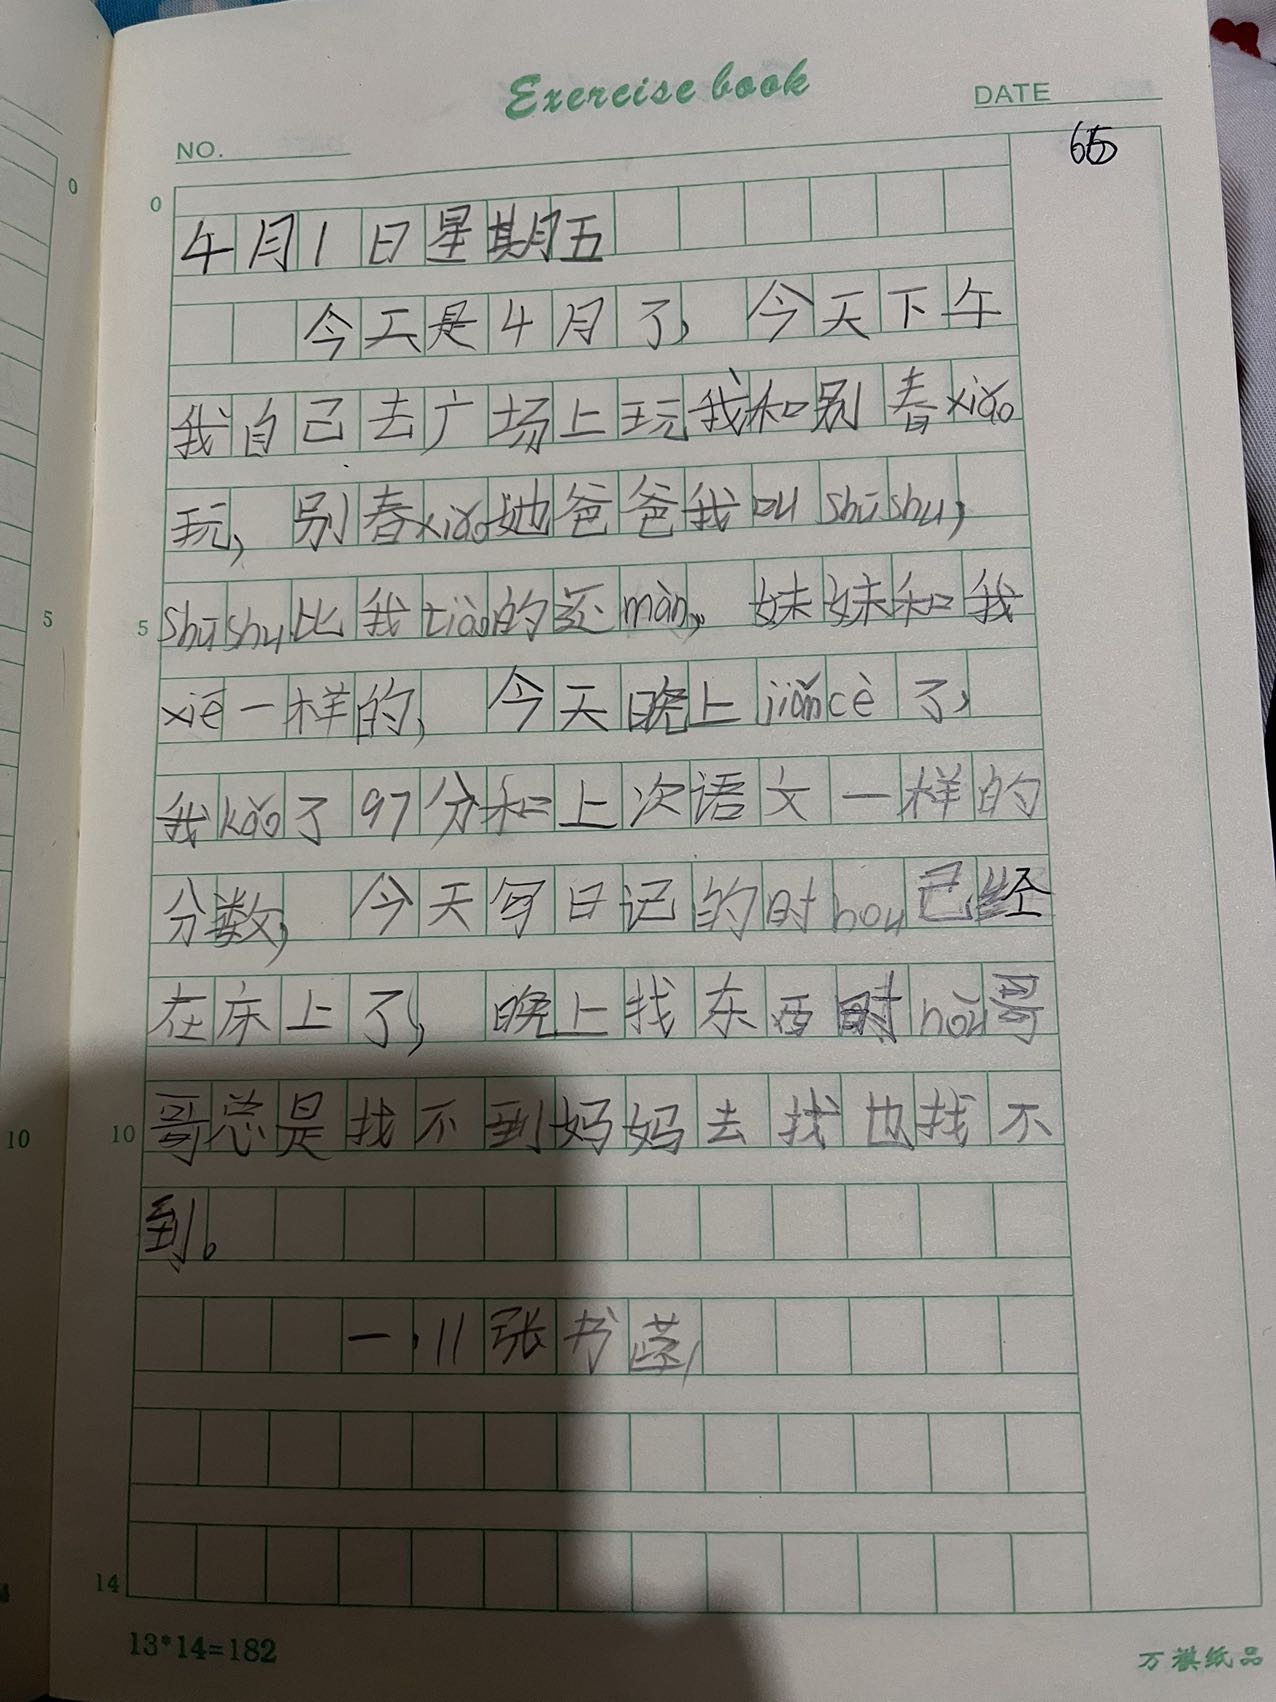 Exercise book
DATE
NO.
65
0
0
4月1日星期五
今工是4月了，今天下午
我自己去广场上玩我和别春xiǎo
玩，别春xiǎo她爸爸我叫shūshu，
5
5
shūshu比我tiào的还màn，妹妹和我
xiě一样的，今天晚上jiǎncè了，
我kǎo了97分和上次语文一样的
分数，今天写日记的时hou已经
在床上了，晚上找东西时hòu哥
10
10
哥总是找不到妈妈去找也找不
到。
一.11张书
14
13*14=182
万祺纸品